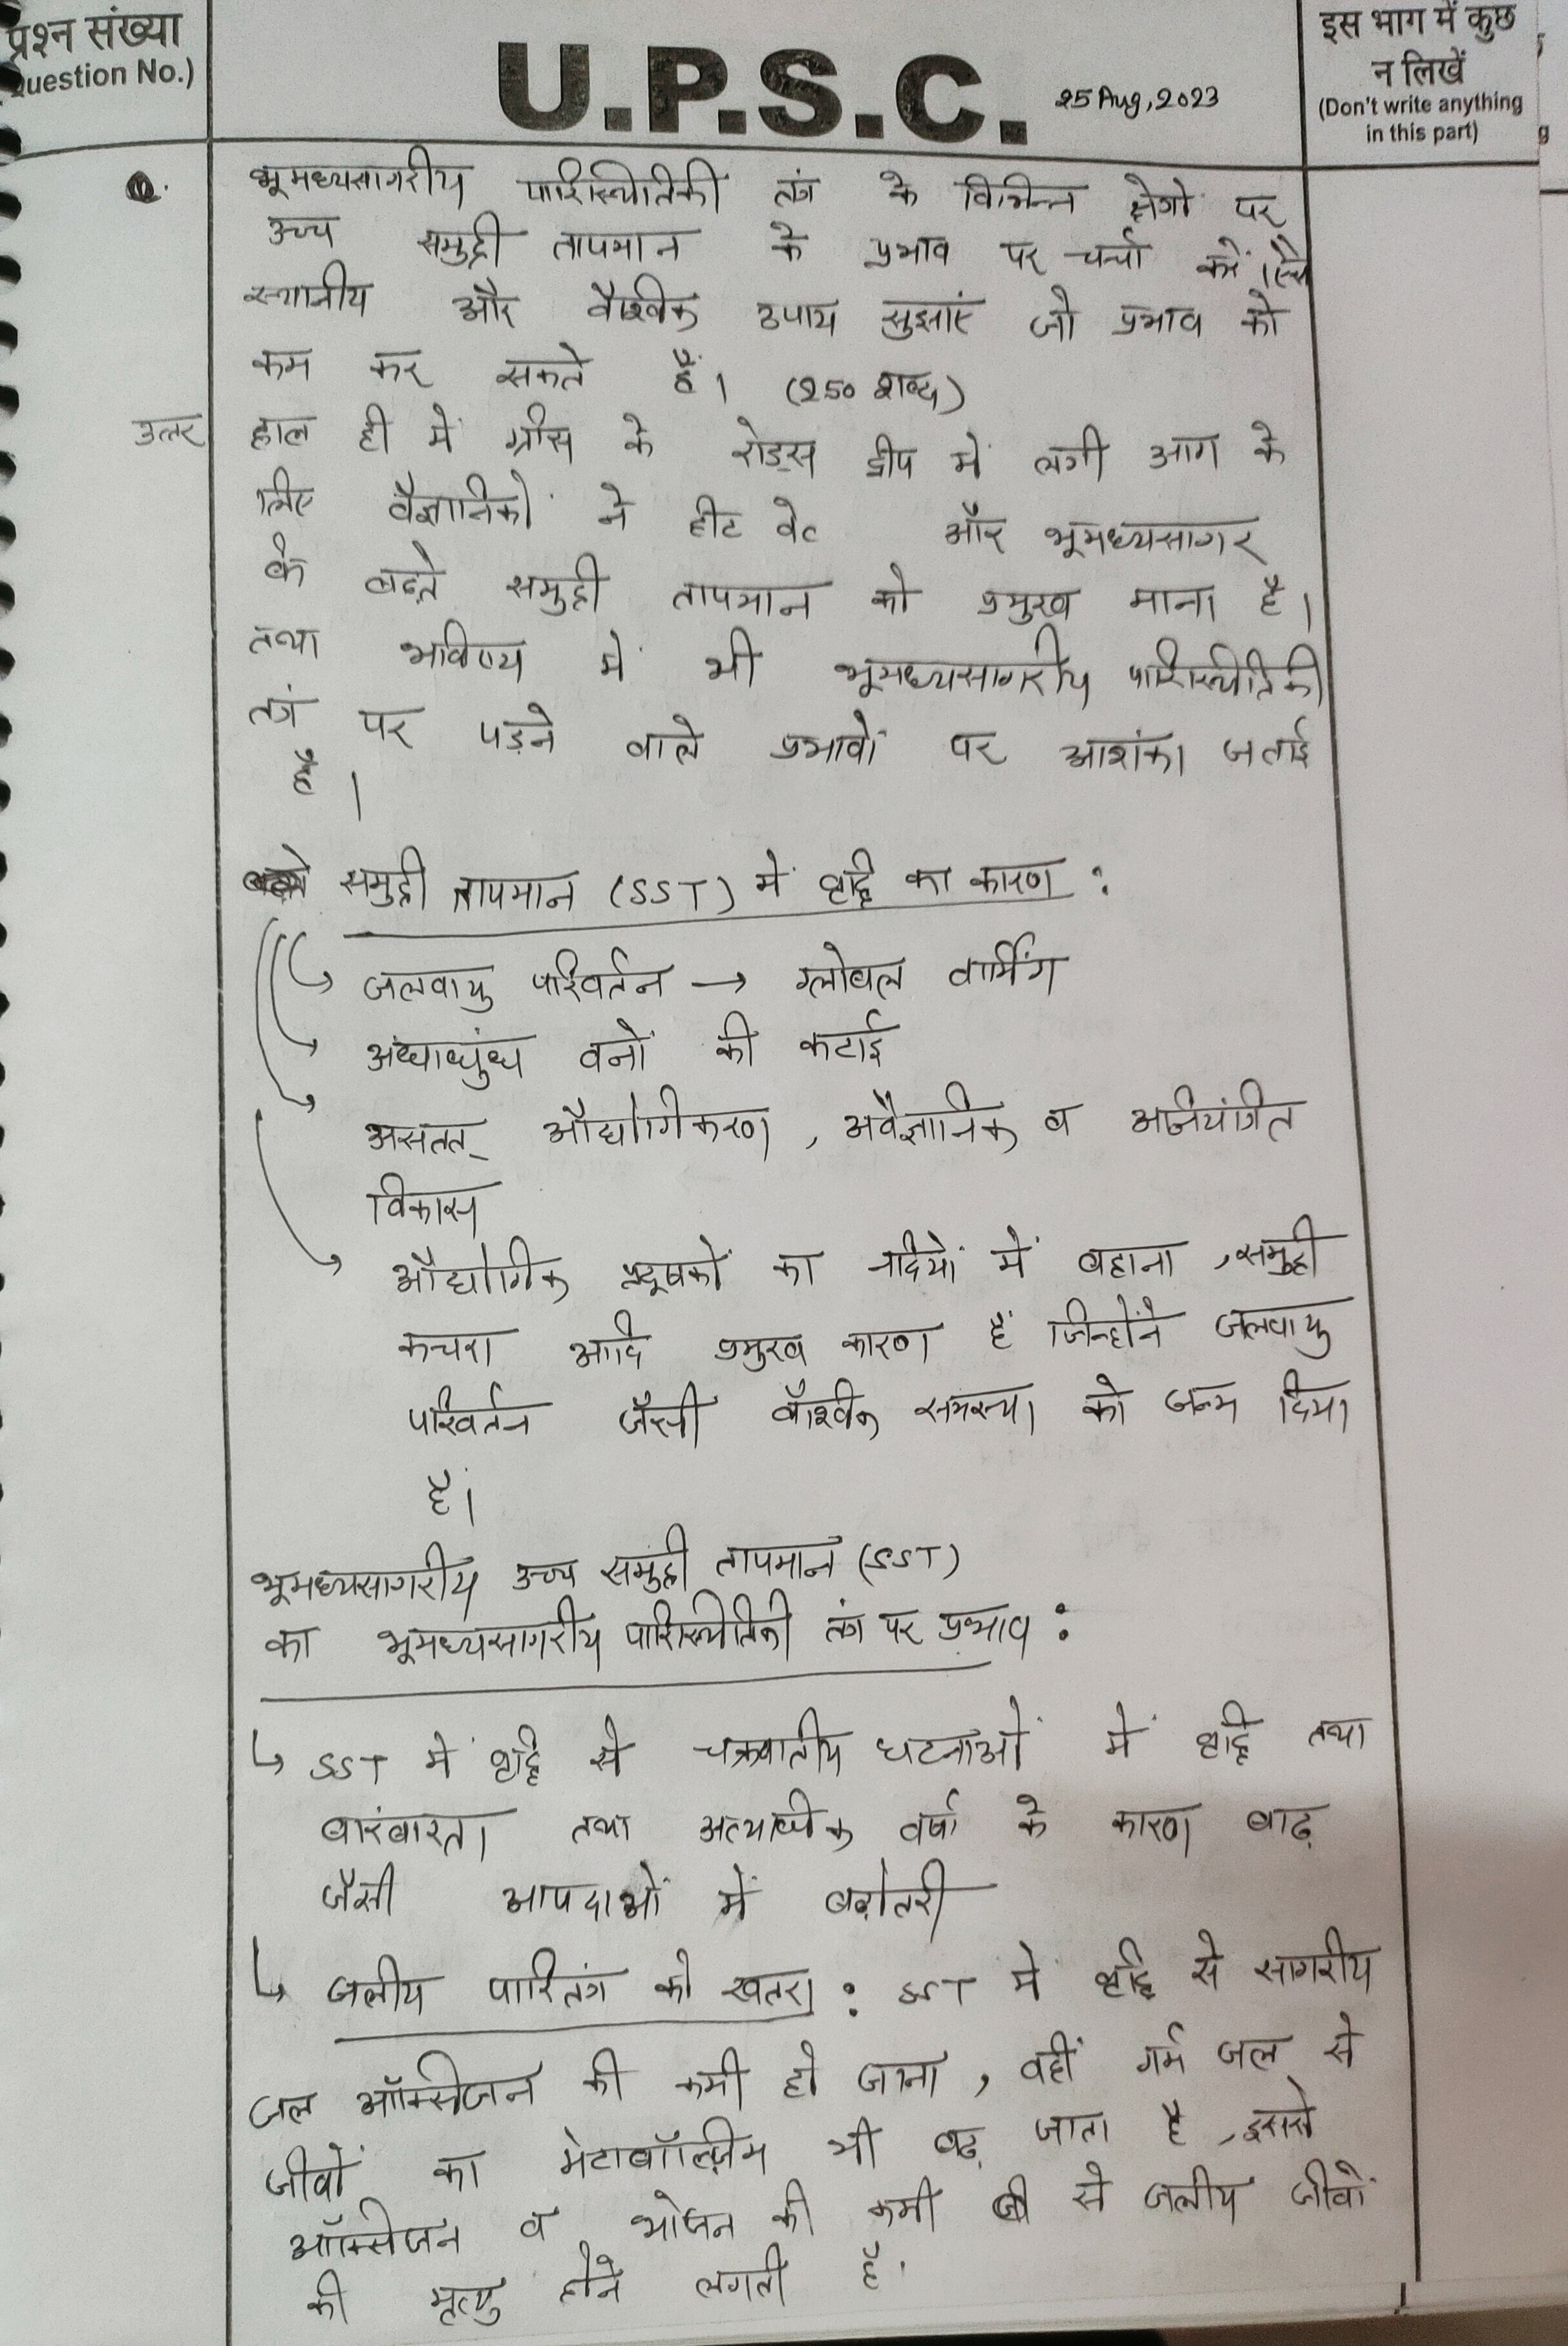 प्रश्न संख्या
Question No.)
U.P.S.C.
25 Aug, 2023
इस भाग में कुछ
न लिखें
(Don't write anything
in this part)
Q.
भूमध्यसागरीय पारिस्थितिकी तंत्र के विभिन्न क्षेत्रों पर
उच्च समुद्री तापमान के प्रभाव पर चर्चा करें।
स्थानीय और वैश्विक उपाय सुझाएं जो प्रभाव को
कम कर सकते हैं। (250 शब्द)
उत्तर
हाल ही में ग्रीस के रोड्स द्वीप में लगी आग के
लिए वैज्ञानिकों ने हीट वेव और भूमध्यसागर
के बढ़ते समुद्री तापमान को प्रमुख माना है।
तथा भविष्य में भी भूमध्यसागरीय पारिस्थितिकी
तंत्र पर पड़ने वाले प्रभावों पर आशंका जताई
है।
समुद्री तापमान (SST) में वृद्धि का कारण :
जलवायु परिवर्तन → ग्लोबल वार्मिंग
अंधाधुंध वनों की कटाई
असतत् औद्योगिकरण, अवैज्ञानिक व अनियंत्रित
विकास
औद्योगिक प्रदूषकों का नदियों में बहाना, समुद्री
कचरा आदि प्रमुख कारण हैं जिन्होंने जलवायु
परिवर्तन जैसी वैश्विक समस्या को जन्म दिया
है।
भूमध्यसागरीय उच्च समुद्री तापमान (SST)
का भूमध्यसागरीय पारिस्थितिकी तंत्र पर प्रभाव :
↳ SST में वृद्धि से चक्रवातीय घटनाओं में वृद्धि तथा
बारंबारता तथा अत्यधिक वर्षा के कारण बाढ़
जैसी आपदाओं में बढ़ोतरी
↳ जलीय पारितंत्र को खतरा : SST में वृद्धि से सागरीय
जल ऑक्सिजन की कमी हो जाना, वहीं गर्म जल से
जीवों का मेटाबॉल्ज़िम भी बढ़ जाता है, इससे
ऑक्सिजन व भोजन की कमी से जलीय जीवों
की मृत्यु होने लगती है।